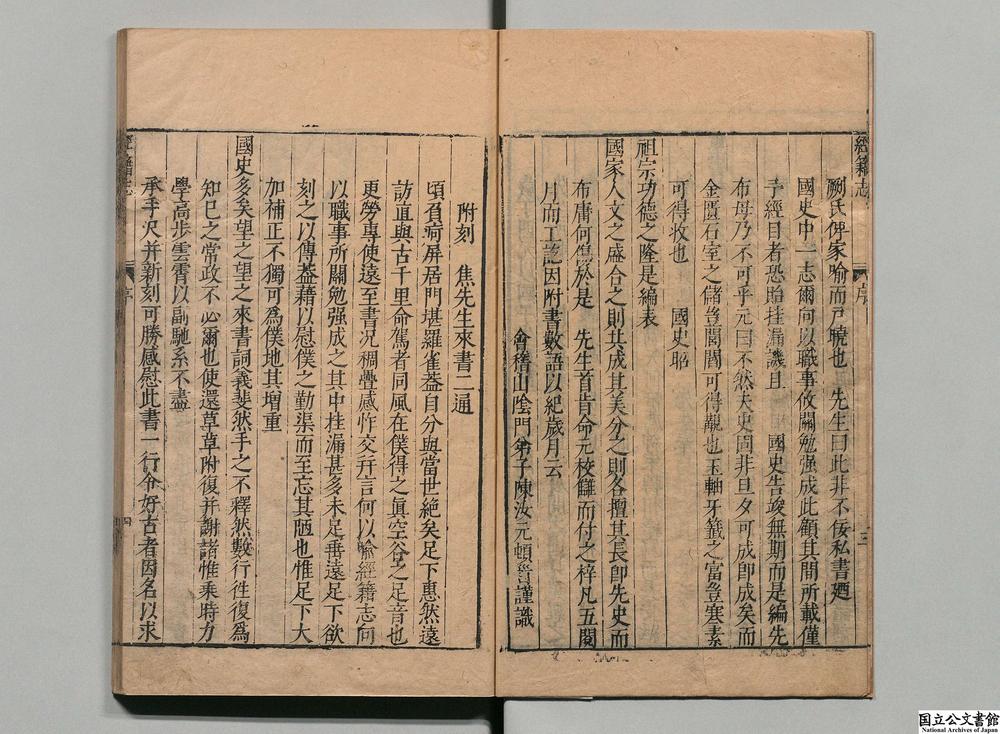 經籍志
序
三
劂氏俾家喻而戶曉也 先生曰此非不佞私書廼
國史中一志爾向以職事攸關勉强成此顧其間所載僅
予經目者恐貽挂漏譏且 國史告竣無期而是編先
布毋乃不可乎元曰不然夫史固非旦夕可成卽成矣而
金匱石室之儲豈閭閻可得覩也玉軸牙籤之富豈寒素
可得收也 國史昭
祖宗功德之隆是編表
國家人文之盛合之則共成其美分之則各擅其長卽先史而
布庸何傷於是 先生首肯命元校讎而付之梓凡五閱
月而工訖因附書數語以紀歲月云
會稽山陰門弟子陳汝元頓首謹識
附刻 焦先生來書二通
頃負疴屏居門堪羅雀葢自分與當世絶矣足下惠然遠
訪直與古千里命駕者同風在僕得之眞空谷之足音也
更勞專使遠至書况稠疊感怍交幷言何以喻經籍志向
以職事所關勉强成之其中挂漏甚多未足垂遠足下欲
刻之以傳葢藉以慰僕之勤渠而至忘其陋也惟足下大
加補正不獨可爲僕地其增重
國史多矣望之望之來書詞義斐然手之不釋然數行往復爲
知已之常政不必爾也使還草草附復幷謝諸惟乘時力
學高步雲霄以副馳系不盡
承手尺幷新刻可勝感慰此書一行令好古者因名以求
經籍志
序
四
国立公文書館
National Archives of Japan